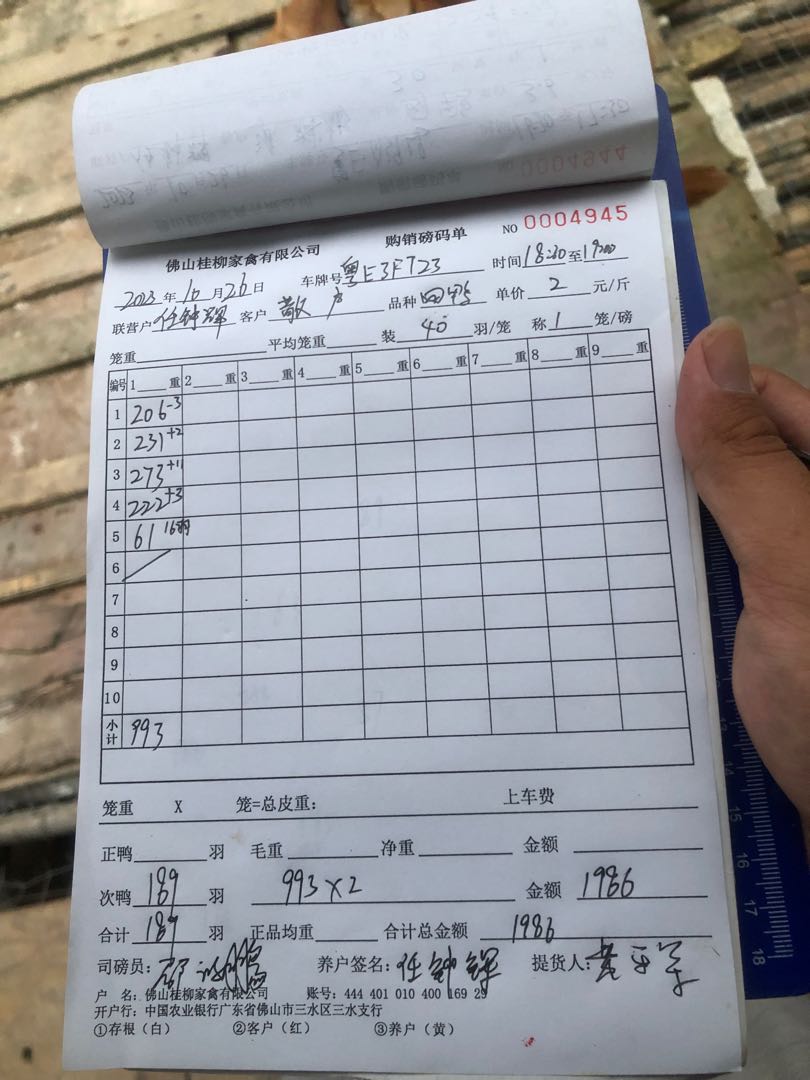 佛山桂柳家禽有限公司 购销磅码单 NO 0004945
2023年10月26日 车牌号粤E3F723 时间18:30至19:00
联营户任钟辉 客户散户 品种 单价2元/斤
笼重 平均笼重 装40羽/笼 称1笼/磅
编号 1 重 2 重 3 重 4 重 5 重 6 重 7 重 8 重 9 重
1 206-3
2 231+2
3 273+11
4 222+3
5 61 16羽
6
7
8
9
10
小计 993
笼重 X 笼=总皮重: 上车费
正鸭 羽 毛重 净重 金额
次鸭 189 羽 993×2 金额 1986
合计 189 羽 正品均重 合计总金额 1986
司磅员: 养户签名:任钟辉 提货人:
户 名:佛山桂柳家禽有限公司 账号:444 401 010 400 169 29
开户行:中国农业银行广东省佛山市三水区三水支行
①存根(白) ②客户(红) ③养户(黄)